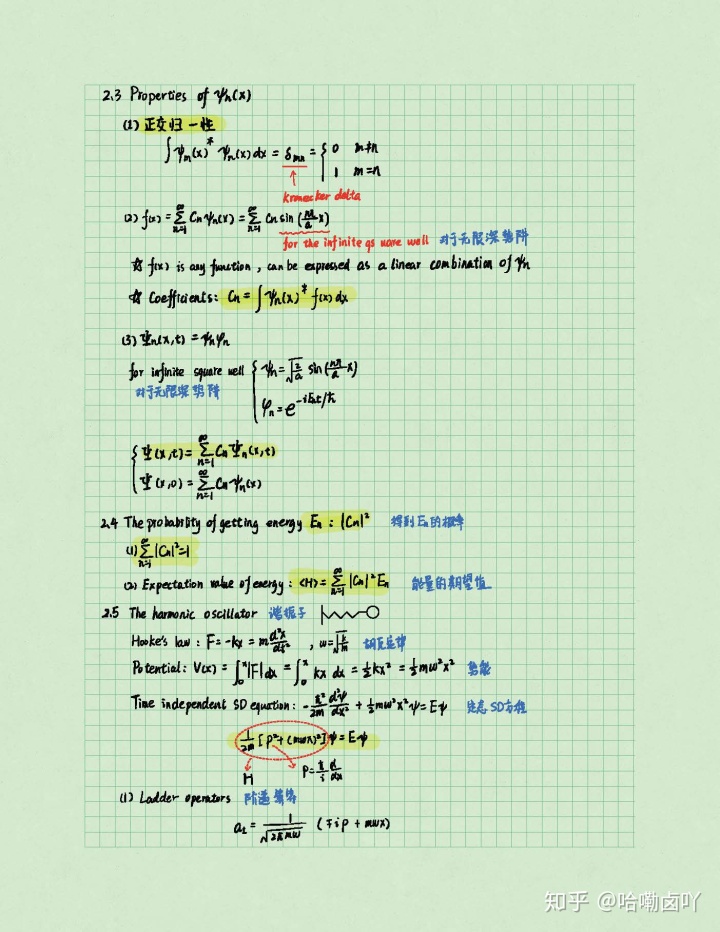 2.3 Properties of ψn(x)
(1) 正交归一性
∫ψm(x)* ψn(x) dx = δmn = { 0 m≠n
1 m=n
kronecker delta
(2) f(x) = Σ_{n=1}^{∞} Cn ψn(x) = Σ_{n=1}^{∞} Cn sin (nπ/a x)
for the infinite square well 对于无限深势阱
☆ f(x) is any function, can be expressed as a linear combination of ψn
☆ Coefficients: Cn = ∫ψn(x)* f(x) dx
(3) Ψn(x,t) = ψnφn
for infinite square well { ψn = √(2/a) sin(nπ/a x)
对于无限深势阱
φn = e^{-iEnt/ħ}
{ Ψ(x,t) = Σ_{n=1}^{∞} Cn Ψn(x,t)
Ψ(x,0) = Σ_{n=1}^{∞} Cn ψn(x)
2.4 The probability of getting energy En : |Cn|² 得到En的概率
(1) Σ_{n=1}^{∞} |Cn|²=1
(2) Expectation value of energy : <H> = Σ_{n=1}^{∞} |Cn|² En 能量的期望值
2.5 The harmonic oscillator 谐振子
Hooke's law : F = -kx = m d²x/dt² , ω=√(k/m) 胡克定律
Potential: V(x) = ∫_0^x |F| dx = ∫_0^x kx dx = ½kx² = ½mω²x² 势能
Time independent SD equation: -ħ²/2m d²ψ/dx² + ½mω²x²ψ = Eψ 定态SD方程
1/2m [P²+(mωx)²]ψ = Eψ
H P = ħ/i d/dx
(1) Ladder operators 阶梯算符
a± = 1/√(2ħmω) (∓ip + mωx)
知乎 @哈嘞卤吖